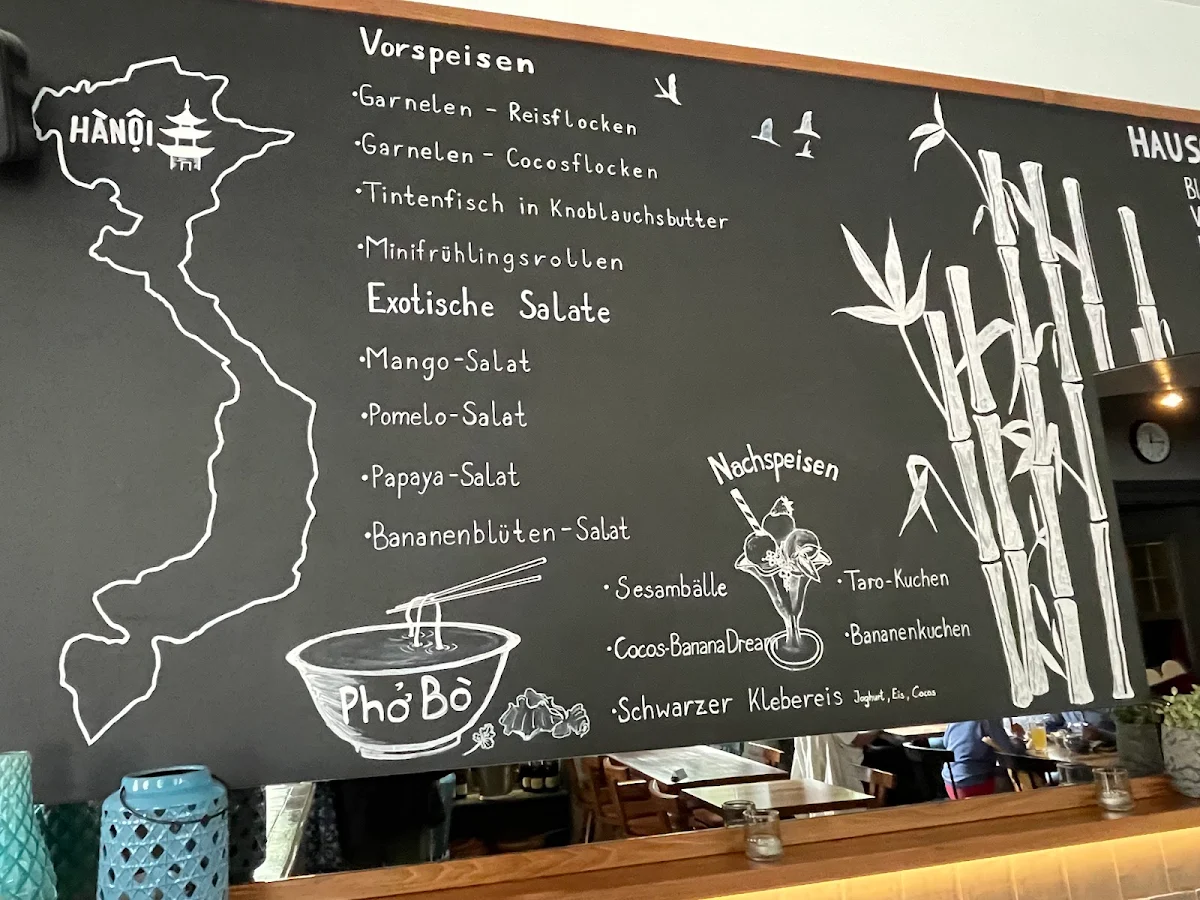 HÀNỘI
Vorspeisen
•Garnelen - Reisflocken
•Garnelen - Cocosflocken
•Tintenfisch in Knoblauchsbutter
•Minifrühlingsrollen
Exotische Salate
•Mango-Salat
•Pomelo-Salat
•Papaya-Salat
•Bananenblüten-Salat
Phở Bò
Nachspeisen
•Sesambälle
•Cocos-Banana Dream
•Taro-Kuchen
•Bananenkuchen
•Schwarzer Klebereis Joghurt, Eis, Cocos